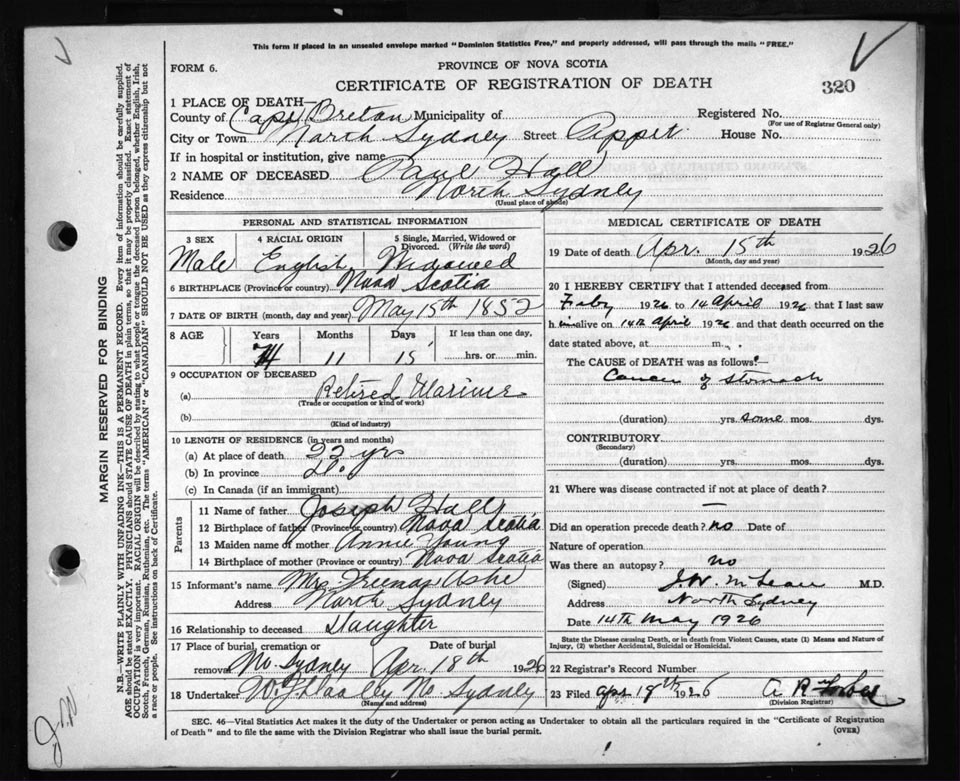 This form if placed in an unsealed envelope marked "Dominion Statistics Free," and properly addressed, will pass through the mails "FREE."
FORM 6.
PROVINCE OF NOVA SCOTIA
CERTIFICATE OF REGISTRATION OF DEATH
320
1 PLACE OF DEATH—
County of Cape Breton Municipality of
Registered No.
(For use of Registrar General only)
City or Town North Sydney Street House No.
If in hospital or institution, give name
2 NAME OF DECEASED Paul Hall
Residence North Sydney
(Usual place of abode)
PERSONAL AND STATISTICAL INFORMATION
3 SEX 4 RACIAL ORIGIN 5 Single, Married, Widowed or Divorced. (Write the word)
Male English Widowed
6 BIRTHPLACE (Province or country) Nova Scotia
7 DATE OF BIRTH (month, day and year) May 15th 1852
8 AGE Years Months Days If less than one day,
11 15 hrs. or min.
9 OCCUPATION OF DECEASED
(a) Retired Mariner
(Trade or occupation or kind of work)
(b)
(Kind of industry)
10 LENGTH OF RESIDENCE (in years and months)
(a) At place of death 22 yrs
(b) In province
(c) In Canada (if an immigrant)
Parents
11 Name of father Joseph Hall
12 Birthplace of father (Province or country) Nova Scotia
13 Maiden name of mother Annie Young
14 Birthplace of mother (Province or country) Nova Scotia
15 Informant's name Mrs Ashe
Address North Sydney
16 Relationship to deceased Daughter
17 Place of burial, cremation or removal Date of burial
No. Sydney Apr. 18th 1926
18 Undertaker No Sydney
(Name and address)
MEDICAL CERTIFICATE OF DEATH
19 Date of death Apr. 15th 1926
(Month, day and year)
20 I HEREBY CERTIFY that I attended deceased from
1926 to 14 April 1926 that I last saw
him alive on 14th April 1926 and that death occurred on the
date stated above, at m.
The CAUSE of DEATH was as follows:
Cancer of stomach
(duration) yrs. some mos. dys.
CONTRIBUTORY
(Secondary)
(duration) yrs. mos. dys.
21 Where was disease contracted if not at place of death?
—
Did an operation precede death? no Date of
Nature of operation
Was there an autopsy? no
(Signed) J.W. McLean M.D.
Address North Sydney
Date 14th May 1926
State the Disease causing Death, or in death from Violent Causes, state (1) Means and Nature of
Injury, (2) whether Accidental, Suicidal or Homicidal.
22 Registrar's Record Number
23 Filed Apr 18th 1926 A R Forbes
(Division Registrar)
SEC. 46—Vital Statistics Act makes it the duty of the Undertaker or person acting as Undertaker to obtain all the particulars required in the "Certificate of Registration
of Death" and to file the same with the Division Registrar who shall issue the burial permit.
(OVER)
MARGIN RESERVED FOR BINDING
N.B.—WRITE PLAINLY WITH UNFADING INK—THIS IS A PERMANENT RECORD. Every item of information should be carefully supplied.
AGE should be stated EXACTLY. PHYSICIANS should STATE CAUSE OF DEATH in plain terms, so that it may be properly classified. Exact statement of
OCCUPATION is very important. RACIAL ORIGIN will be described by stating to what people or tongue the deceased person belonged, whether English, Irish,
Scotch, French, German, Russian, Ruthenian, etc. The terms "AMERICAN" or "CANADIAN" SHOULD NOT BE USED as they express citizenship but not
a race or people. See instructions on back of Certificate.